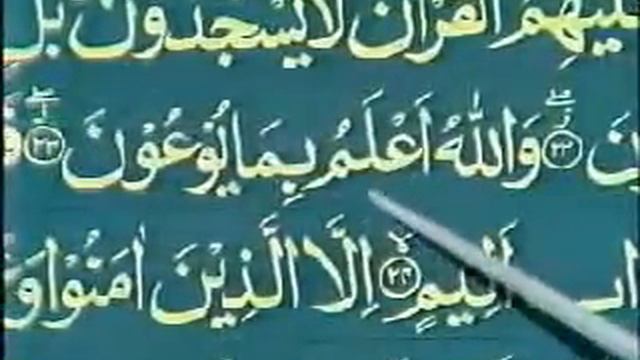 لَيْهِمُ الْقُرْاٰنُ لَا يَسْجُدُوْنَ بَلِ
نَ ۲۲ وَاللّٰهُ اَعْلَمُ بِمَا يُوْعُوْنَ ۲۳ فَ
اَلِيْمٍ ۲۴ اِلَّا الَّذِيْنَ اٰمَنُوْا وَ